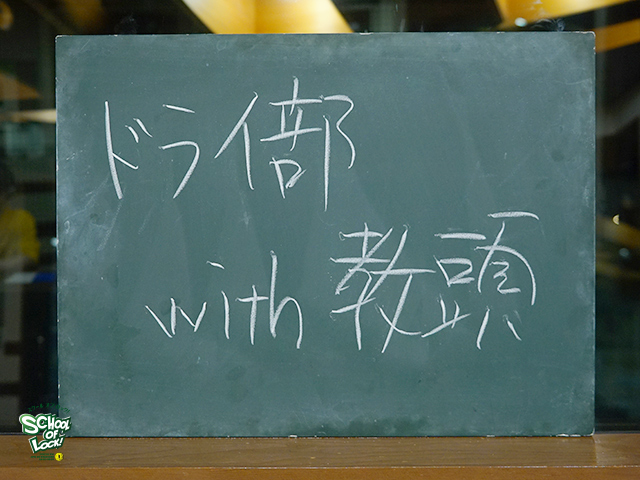 ドライ部
with 教頭
SCHOOL
OF
LOCK!